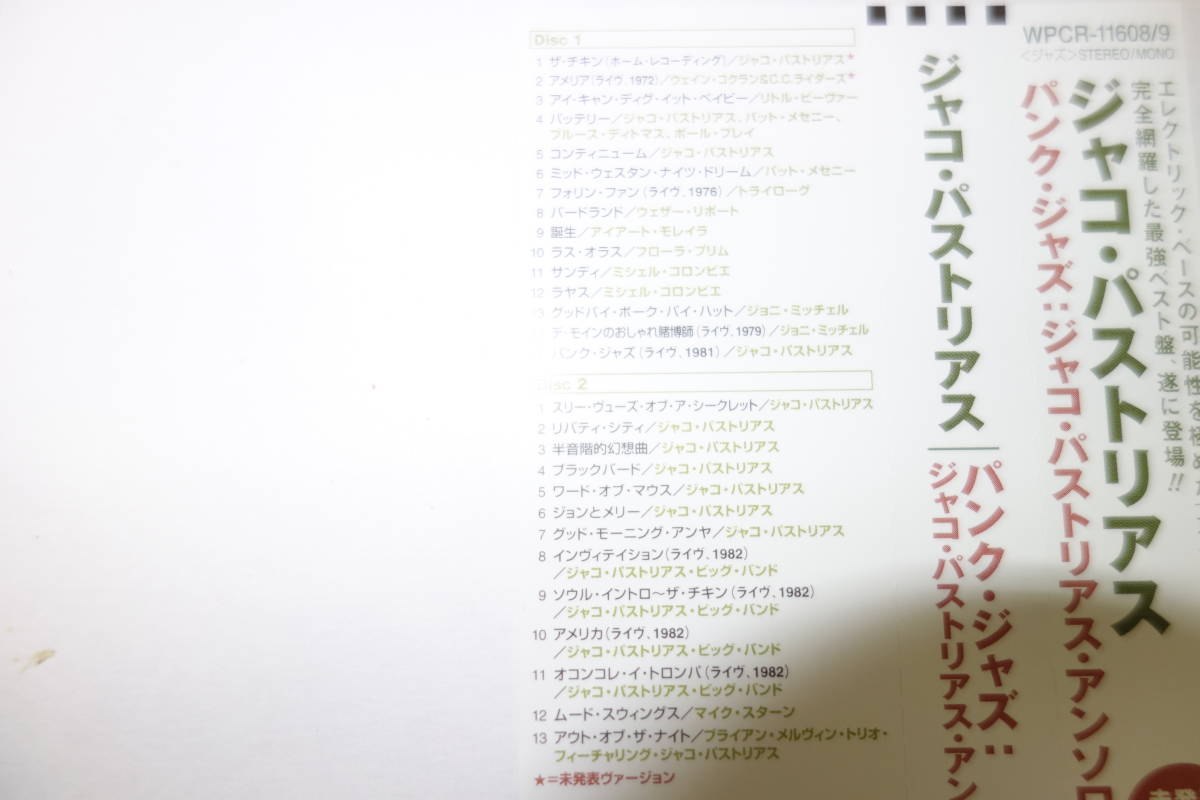 Disc 1
1 ザ・チキン(ホーム・レコーディング)／ジャコ・パストリアス★
2 アメリア(ライヴ、1972)／ウェイン・コクラン&C.C.ライダーズ★
3 アイ・キャン・ディグ・イット・ベイビー／リトル・ビーヴァー
4 バッテリー／ジャコ・パストリアス、パット・メセニー、
ブルース・ディトマス、ポール・ブレイ
5 コンティニューム／ジャコ・パストリアス
6 ミッド・ウェスタン・ナイツ・ドリーム／パット・メセニー
7 フォリン・ファン(ライヴ、1976)／トライローグ
8 バードランド／ウェザー・リポート
9 誕生／アイアート・モレイラ
10 ラス・オラス／フローラ・プリム
11 サンディ／ミシェル・コロンビエ
12 ラヤス／ミシェル・コロンビエ
13 グッドバイ・ポーク・パイ・ハット／ジョニ・ミッチェル
デ・モインのおしゃれ賭博師(ライヴ、1979)／ジョニ・ミッチェル
パンク・ジャズ(ライヴ、1981)／ジャコ・パストリアス
Disc 2
1 スリー・ヴューズ・オブ・ア・シークレット／ジャコ・パストリアス
2 リバティ・シティ／ジャコ・パストリアス
3 半音階的幻想曲／ジャコ・パストリアス
4 ブラックバード／ジャコ・パストリアス
5 ワード・オブ・マウス／ジャコ・パストリアス
6 ジョンとメリー／ジャコ・パストリアス
7 グッド・モーニング・アンヤ／ジャコ・パストリアス
8 インヴィテイション(ライヴ、1982)
／ジャコ・パストリアス・ビッグ・バンド
9 ソウル・イントロ～ザ・チキン(ライヴ、1982)
／ジャコ・パストリアス・ビッグ・バンド
10 アメリカ(ライヴ、1982)
／ジャコ・パストリアス・ビッグ・バンド
11 オコンコレ・イ・トロンパ(ライヴ、1982)
／ジャコ・パストリアス・ビッグ・バンド
12 ムード・スウィングス／マイク・スターン
13 アウト・オブ・ザ・ナイト／ブライアン・メルヴィン・トリオ・
フィーチャリング・ジャコ・パストリアス
★=未発表ヴァージョン
WPCR-11608/9
〈ジャズ〉STEREO/MONO
エレクトリック・ベースの可能性を極めた
完全網羅した最強ベスト盤、遂に登場!!
ジャコ・パストリアス
パンク・ジャズ：ジャコ・パストリアス・アンソロ
ジャコ・パストリアス
パンク・ジャズ：
ジャコ・パストリアス・アン
未発